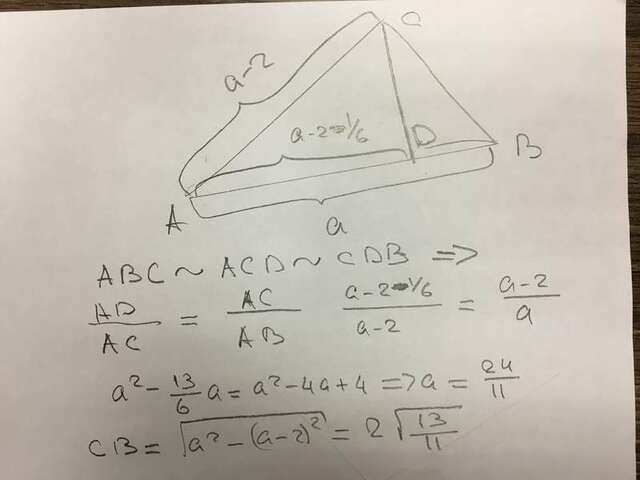 C
a-2
a-2-1/6
D
B
A
a
ABC ~ ACD ~ CDB =>
AD/AC = AC/AB (a-2-1/6)/(a-2) = (a-2)/a
a² - 13/6 a = a² - 4a + 4 => a = 24/11
CB = √(a² - (a-2)²) = 2√(13/11)